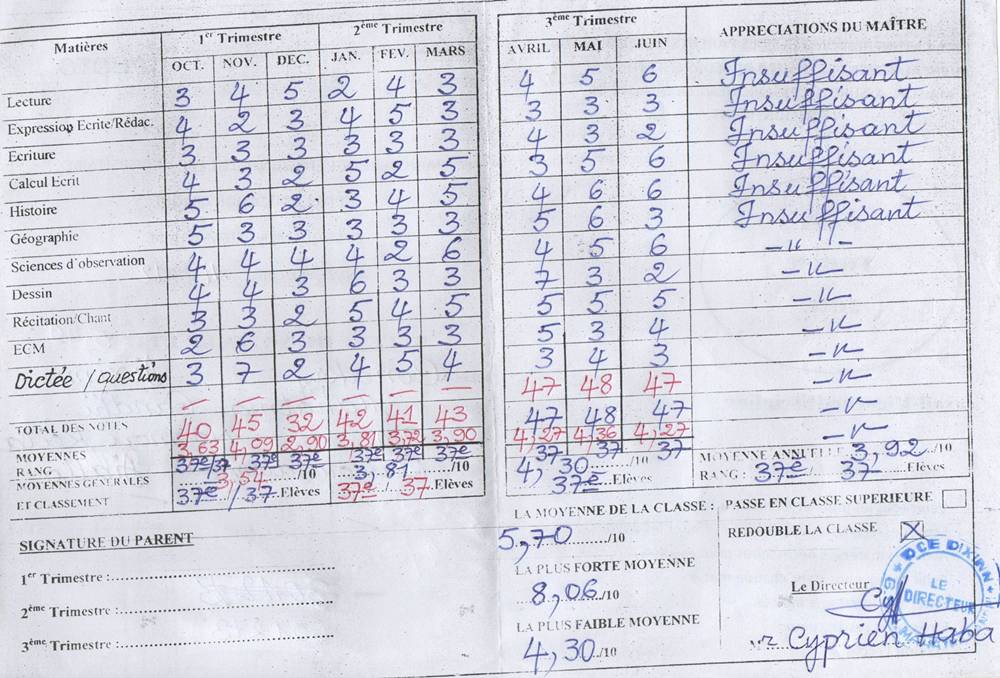 Matières 1er Trimestre 2ème Trimestre 3ème Trimestre APPRECIATIONS DU MAÎTRE
OCT. NOV. DEC. JAN. FEV. MARS AVRIL MAI JUIN
Lecture 3 4 5 2 4 3 4 5 6 Insuffisant
Expression Ecrite/Rédac. 4 2 3 4 5 3 3 3 3 Insuffisant
Ecriture 3 3 3 3 3 3 4 3 2 Insuffisant
Calcul Ecrit 4 3 2 5 2 5 3 5 6 Insuffisant
Histoire 5 6 2 3 4 5 4 6 6 Insuffisant
Géographie 5 3 3 3 3 3 5 6 3 Insuffisant
Sciences d'observation 4 4 4 4 2 6 4 5 6 -"-
Dessin 4 4 3 6 3 3 7 3 2 -"-
Récitation/Chant 3 3 2 5 4 5 5 5 5 -"-
ECM 2 6 3 3 3 3 5 3 4 -"-
Dictée / questions 3 7 2 4 5 4 3 4 3 -"-
47 48 47 -"-
TOTAL DES NOTES 40 45 32 42 41 43 47 48 47 -"-
MOYENNES 3,63 4,09 2,90 3,81 3,72 3,90 4,27 4,36 4,27 -"-
RANG 37e/37 37e 37e 37e 37e 37e 37 37 37
MOYENNES GENERALES 3,54 /10 3,81 /10 4,30 /10 MOYENNE ANNUELLE 3,92 /10
ET CLASSEMENT 37e / 37 Elèves 37e / 37 Elèves 37e Elèves RANG : 37e / 37 Elèves
LA MOYENNE DE LA CLASSE :
5,70 /10
LA PLUS FORTE MOYENNE
8,06 /10
LA PLUS FAIBLE MOYENNE
4,30 /10
PASSE EN CLASSE SUPERIEURE
REDOUBLE LA CLASSE X
Le Directeur
DCE DIXINN
LE DIRECTEUR
Mr Cyprien Haba
SIGNATURE DU PARENT
1er Trimestre :
2ème Trimestre :
3ème Trimestre :